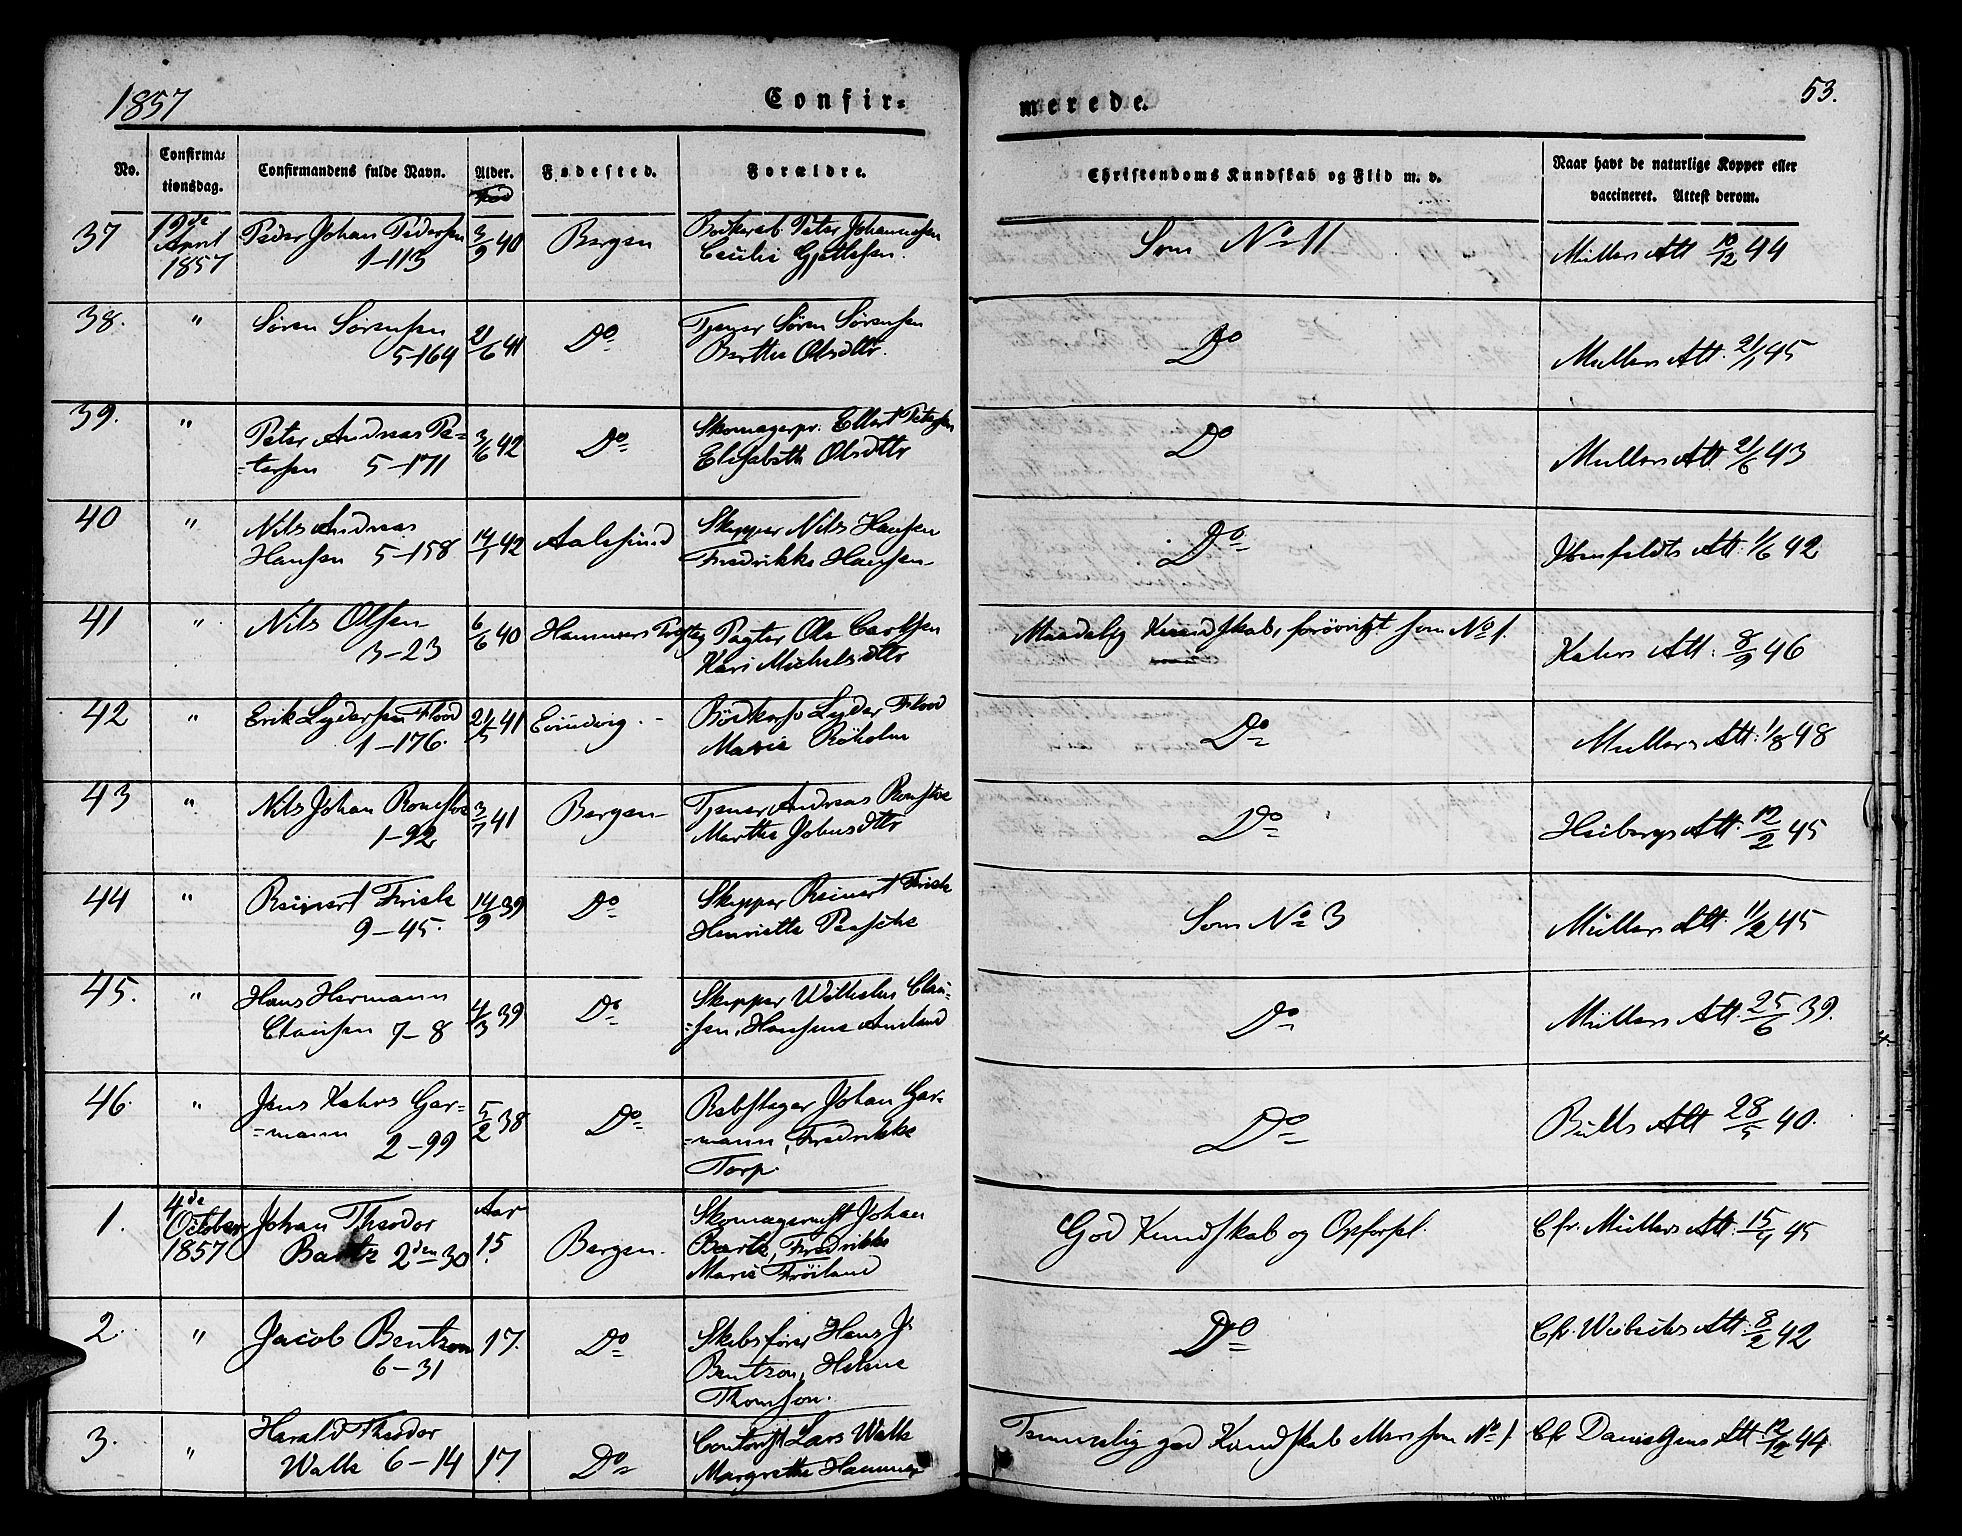 1857
Confir-
merede.
53.
No.
Confirma-
tionsdag.
Confirmandens fulde Navn.
Alder.
Fødested.
Forældre.
Christendoms Kundskab og Flid m. v.
Naar havt de naturlige Kopper eller
vaccineret. Attest derom.
37 19de April 1857 Peder Johan Pedersen 1-113 3/9 40 Bergen Peter Johannesen Cecilie Som No 11 Müllers Att 10/12 44
38. " Søren Sørensen 5-164 21/6 41 Do Tjener Søren Sørensen Berthe Olsdttr. Do Mullers Att. 21/1 45
39. " Peter Andreas Pe-
tersen 5-171 3/6 42 Do Skomagersv. Ellert Petersen Elisabeth Olsdttr Do Mullers Att 21/6 43
40 " Nils Andreas
Hansen 5-158 14/1 42 Aalesund Skipper Nils Hansen
Fredrikke Hansen Do Att. 1/6 42
41 " Nils Olsen
3-23 6/6 40 Hammers Prgjeld Ole Carlsen
Kari Michelsdttr Maadelig Kundskab, forøvrigt som No 1. Kahrs Att. 8/9 46
42 " Erik Lydersen Flood
1-176. 21/5 41 Evindvig Bødkersv Lyder Flood
Marie Do Mullers Att: 1/8 48
43 " Nils Johan
1-92 3/7 41 Bergen Tjener Andreas
Marthe Do Heibergs Att. 12/2 45
44 " Reinert Friele
9-45. 14/9 39 Do Skipper Reinert Friele
Henriette Som No 3 Müllers Att. 11/2 45
45. " Hans Hermann
Clausen 7-8 4/3 39 Do Skipper Wilhelm Clau-
sen, Hansine Do Müllers Att. 25/6 39.
46. " Jens Kahrs Gar-
mann 2-99 5/2 38 Do Rebslager Johan Gar-
mann, Fredrikke
Torp. Do Bulls Att 28/5 40.
1. 4de October 1857 Johan Theodor
2den 30 Aar 15. Bergen. Johan
Fredrikke
Marie Frøiland God Kundskab og Opførsel. Cfr. Müllers Att. 45
2. " Jacob Bentzon
6-31 17. Do Skibsfører Hans J.
Bentzon, Helene
Thomson. Do Cfr. Att. 8/2 42
3. " Harald Theodor
Walle 6-14 17 Do Contorist Lars Walle
Margrethe Hammer Temmelig god Kundskab Mere som No 1. Cfr Danielsens Att 12/12 44